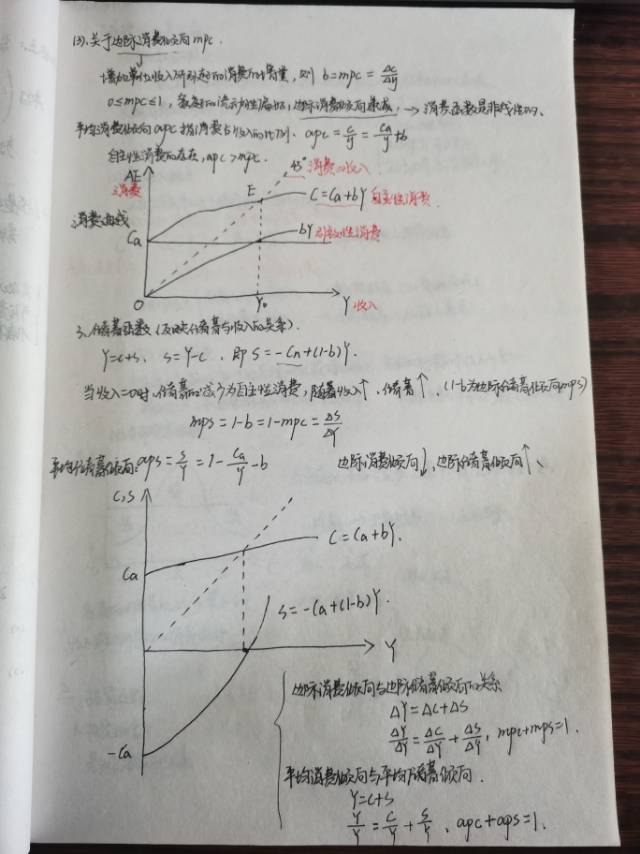 (3).关于边际消费倾向mpc.
增加单位收入所引起的消费的增量,则 b=mpc=ΔC/ΔY
0≤mpc≤1, 边际消费倾向递减, → 消费函数是非线性的.
平均消费倾向apc 指消费占收入的比例. apc=C/Y=Ca/Y+b
自主性消费的存在, apc>mpc.
AE 45° 消费=收入
消费
E C=Ca+bY 自主性消费
消费曲线
Ca bY 引致性消费
O Y₀ Y 收入
3、储蓄函数(反映储蓄与收入的关系).
Y=C+S, S=Y-C, 即S=-Ca+(1-b)Y.
当收入=0时,储蓄的减少为自主性消费,随着收入↑,储蓄↑,(1-b为边际储蓄倾向mps)
mps=1-b=1-mpc=ΔS/ΔY
平均储蓄倾向:aps=S/Y=1-Ca/Y-b 边际消费倾向↓,边际储蓄倾向↑、
C,S
C=Ca+bY.
Ca
S=-Ca+(1-b)Y.
Y
边际消费倾向与边际储蓄倾向的关系
ΔY=ΔC+ΔS
-Ca
ΔY/ΔY=ΔC/ΔY+ΔS/ΔY, mpc+mps=1.
平均消费倾向与平均储蓄倾向.
Y=C+S
Y/Y=C/Y+S/Y、apc+aps=1.